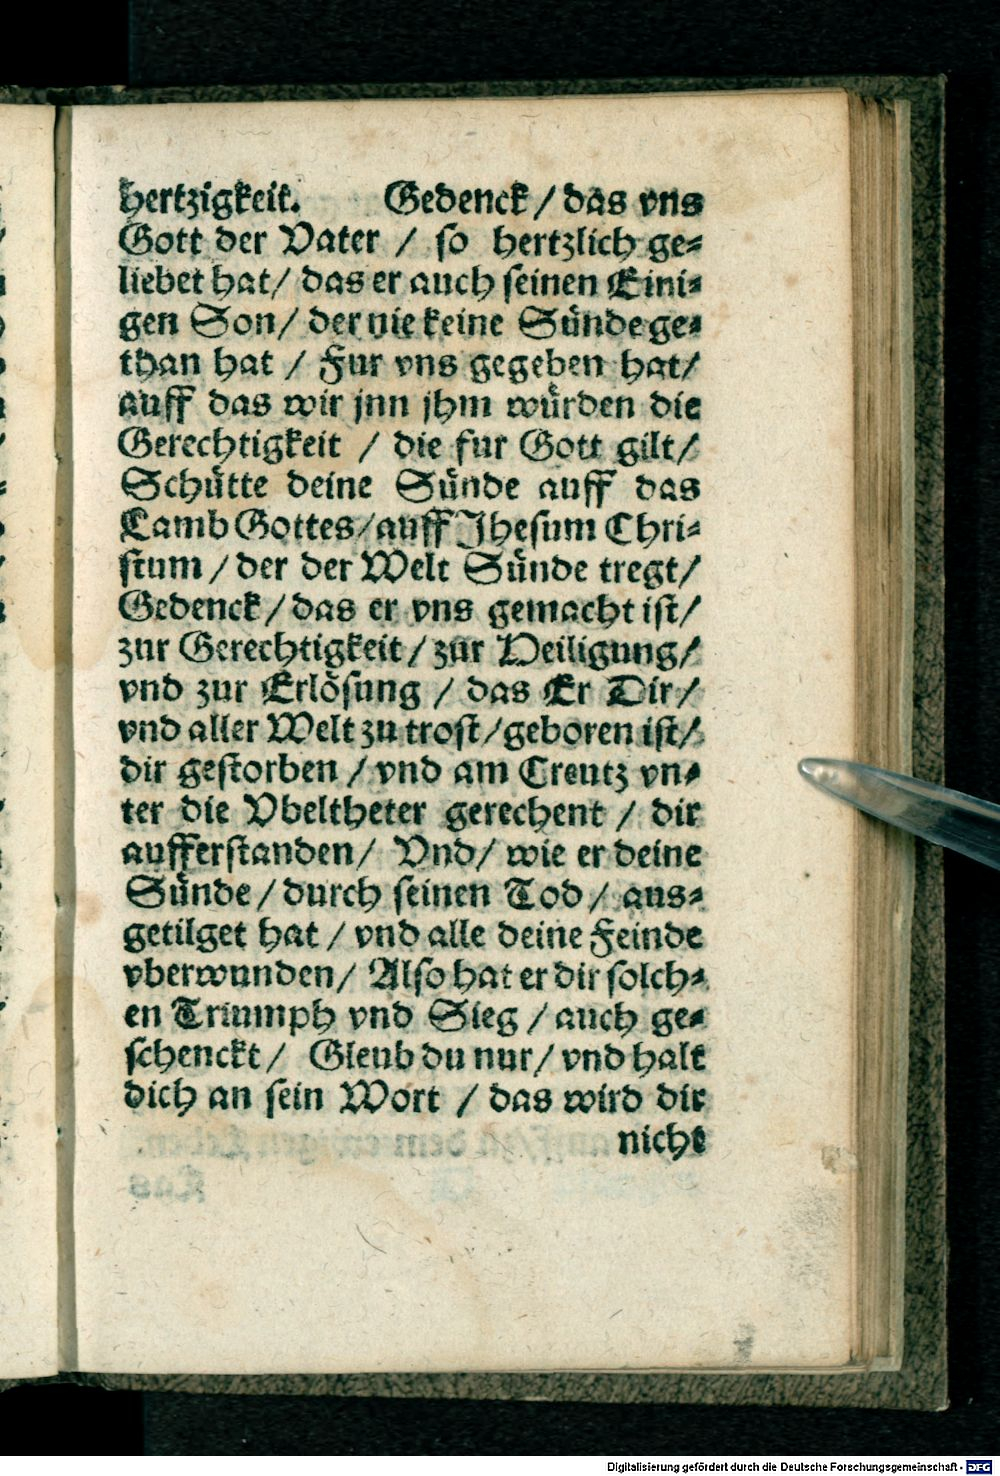 hertzigkeit. Gedenck / das vns
Gott der Vater / so hertzlich ge⸗
liebet hat / das er auch seinen Eini⸗
gen Son / der nie keine Sünde ge⸗
than hat / Fur vns gegeben hat /
auff das wir jnn jhm würden die
Gerechtigkeit / die fur Gott gilt /
Schütte deine Sünde auff das
Lamb Gottes / auff Jhesum Chri⸗
stum / der der Welt Sünde tregt /
Gedenck / das er vns gemacht ist /
zur Gerechtigkeit / zur Heiligung /
vnd zur Erlösung / das Er Dir /
vnd aller Welt zu trost / geboren ist /
dir gestorben / vnd am Creutz vn⸗
ter die Vbeltheter gerechent / dir
aufferstanden / Vnd / wie er deine
Sünde / durch seinen Tod / aus⸗
getilget hat / vnd alle deine Feinde
vberwunden / Also hat er dir solch⸗
en Triumph vnd Sieg / auch ge⸗
schenckt / Gleub du nur / vnd halt
dich an sein Wort / das wird dir
nicht
Digitalisierung gefördert durch die Deutsche Forschungsgemeinschaft - DFG